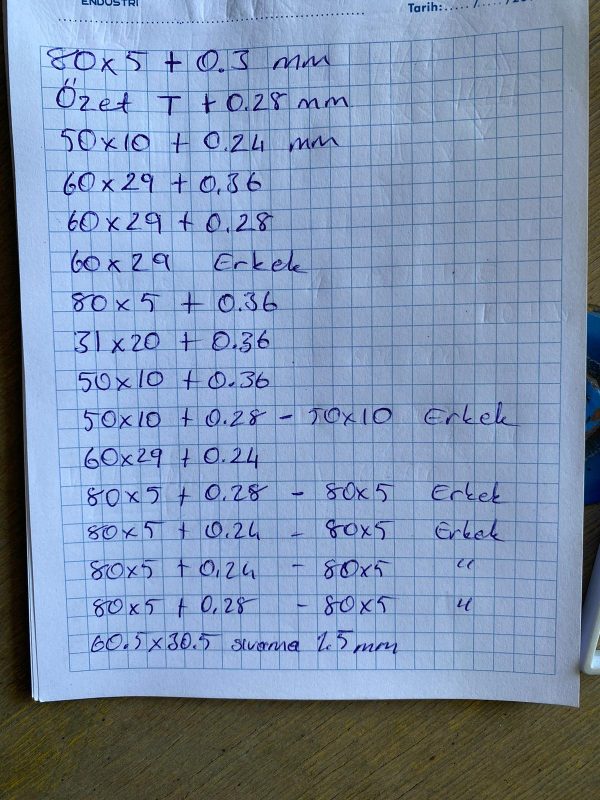 ENDÜSTRİ
Tarih:...../...../20
80x5 + 0.3 mm
Özet T + 0.28 mm
50x10 + 0.24 mm
60x29 + 0.36
60x29 + 0.28
60x29 Erkek
80x5 + 0.36
31x20 + 0.36
50x10 + 0.36
50x10 + 0.28 - 50x10 Erkek
60x29 + 0.24
80x5 + 0.28 - 80x5 Erkek
80x5 + 0.24 - 80x5 Erkek
80x5 + 0,24 - 80x5 "
80x5 + 0,28 - 80x5 "
60.5x30.5 sıvama 1.5mm